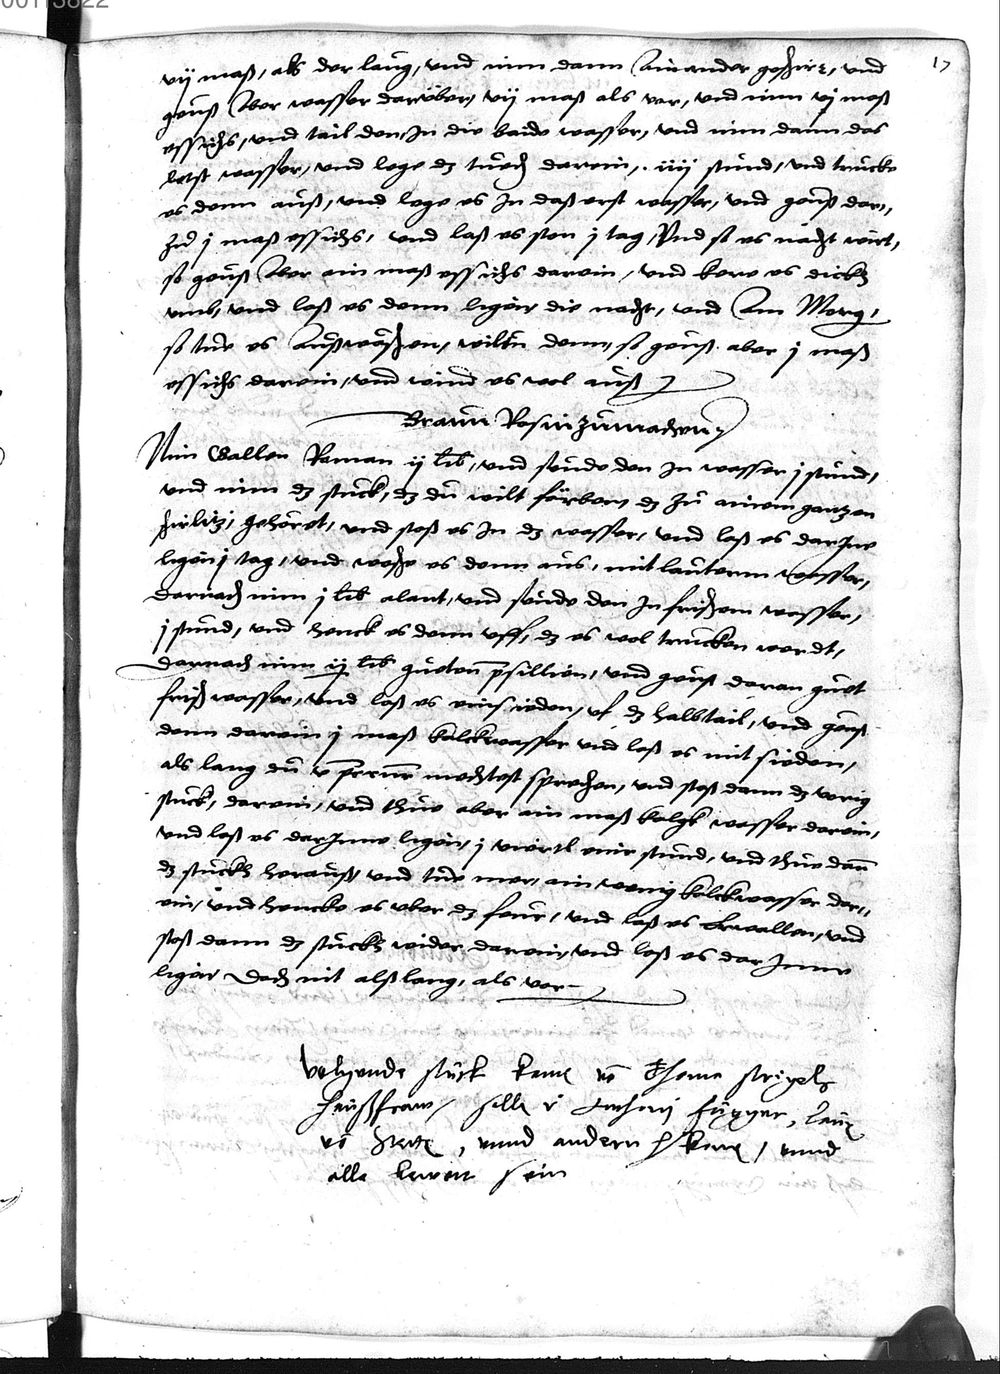 00113822
17
vij maß, als der laug, vnd nim dann Ain ander geschirr, vnd
geuß Aber wasser darüber, vij maß als vor, vnd nim vj maß
essichs, vnd tail den, In die baide wasser, vnd nim dann das
letst wasser, vnd lege dz tuech darein, iiij stund, vnd truckh
es denn auß, vnd lege es In daß erst wasser, vnd geuß dar,,
zu j maß essichs, vnd laß es sten j tag, Vnd so es nacht wirt,
so geuß Aber ein maß essichs darein, vnd kere es dickh
vmb, vnd laß es denn ligen die nacht, vnd Am Morg,
so tue es Außwäschen, denn, so geuß aber j maß
essichs darein, vnd wind es wol auß
Braun Rosin zumachen,
Nim Gallen Roman ij lib, vnd seude den In wasser j stund,
vnd nim dz stuck, dz du wilt förben, dz zu ainem gantzen
gehöret, vnd stoß es In dz wasser, vnd laß es darJnn
ligen j tag, vnd wesche es denn aus, mit lauterm wasser,
darnach nim j lib alant, vnd seude den In frischem wasser,
j stund, vnd henck es denn vff, dz es wol trucken werdt,
Darnach nim ij lib gueten prsillien, vnd geuß daran guet
frisch wasser, vnd laß es einsieden, vf dz halbtail, vnd geuß
denn darein j maß kalckwasser vnd laß es mit sieden,
als lang du v mechtest sprechen, vnd stoß dann dz vorig
stuck, darein, vnd thue aber ain maß kalck wasser darein,
vnd laß es darJnne ligen, j viertl einr stund, vnd thue dan
dz stuckh herauß, vnd tue mer, ain wenig kalckwasser dar,,
ein, vnd hencke es vber dz feur, vnd laß es erwallen, vnd
stoß dann dz stuckh wider darein, vnd laß es dar Jnne
ligen Doch nit alß lang, als vor
Volgende stuck von Thoma
haußfraw, Anthonj fugger,
von, vnnd andern, vnnd
alle bewert sein